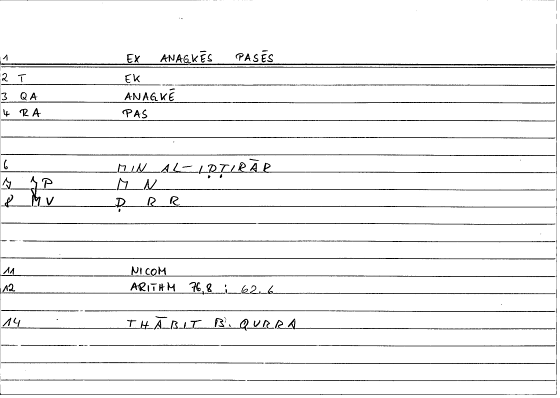 1 EX ANAGKĒS PASĒS
2 T EK
3 QA ANAGKĒ
4 RA PAS
6 MIN AL-IḌṬIRĀR
7 JP M N
8 MV Ḍ R R
11 NICOM
12 ARITHM 76,8 ; 62.6
14 THĀBIT B. QURRA